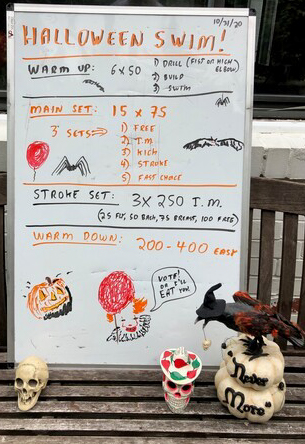 10/31/20
HALLOWEEN SWIM!
WARM UP: 6x50 1) DRILL (FIST OR HIGH ELBOW)
2) BUILD
3) SWIM
MAIN SET: 15 x 75
3 SETS⇒ 1) FREE
2) I.M.
3) KICK
4) STROKE
5) FAST CHOICE
STROKE SET: 3X 250 I.M.
(25 FLY, 50 BACK, 75 BREAST, 100 FREE)
WARM DOWN: 200-400 EASY
VOTE!
OR I'LL
EAT YOU.
Never
More